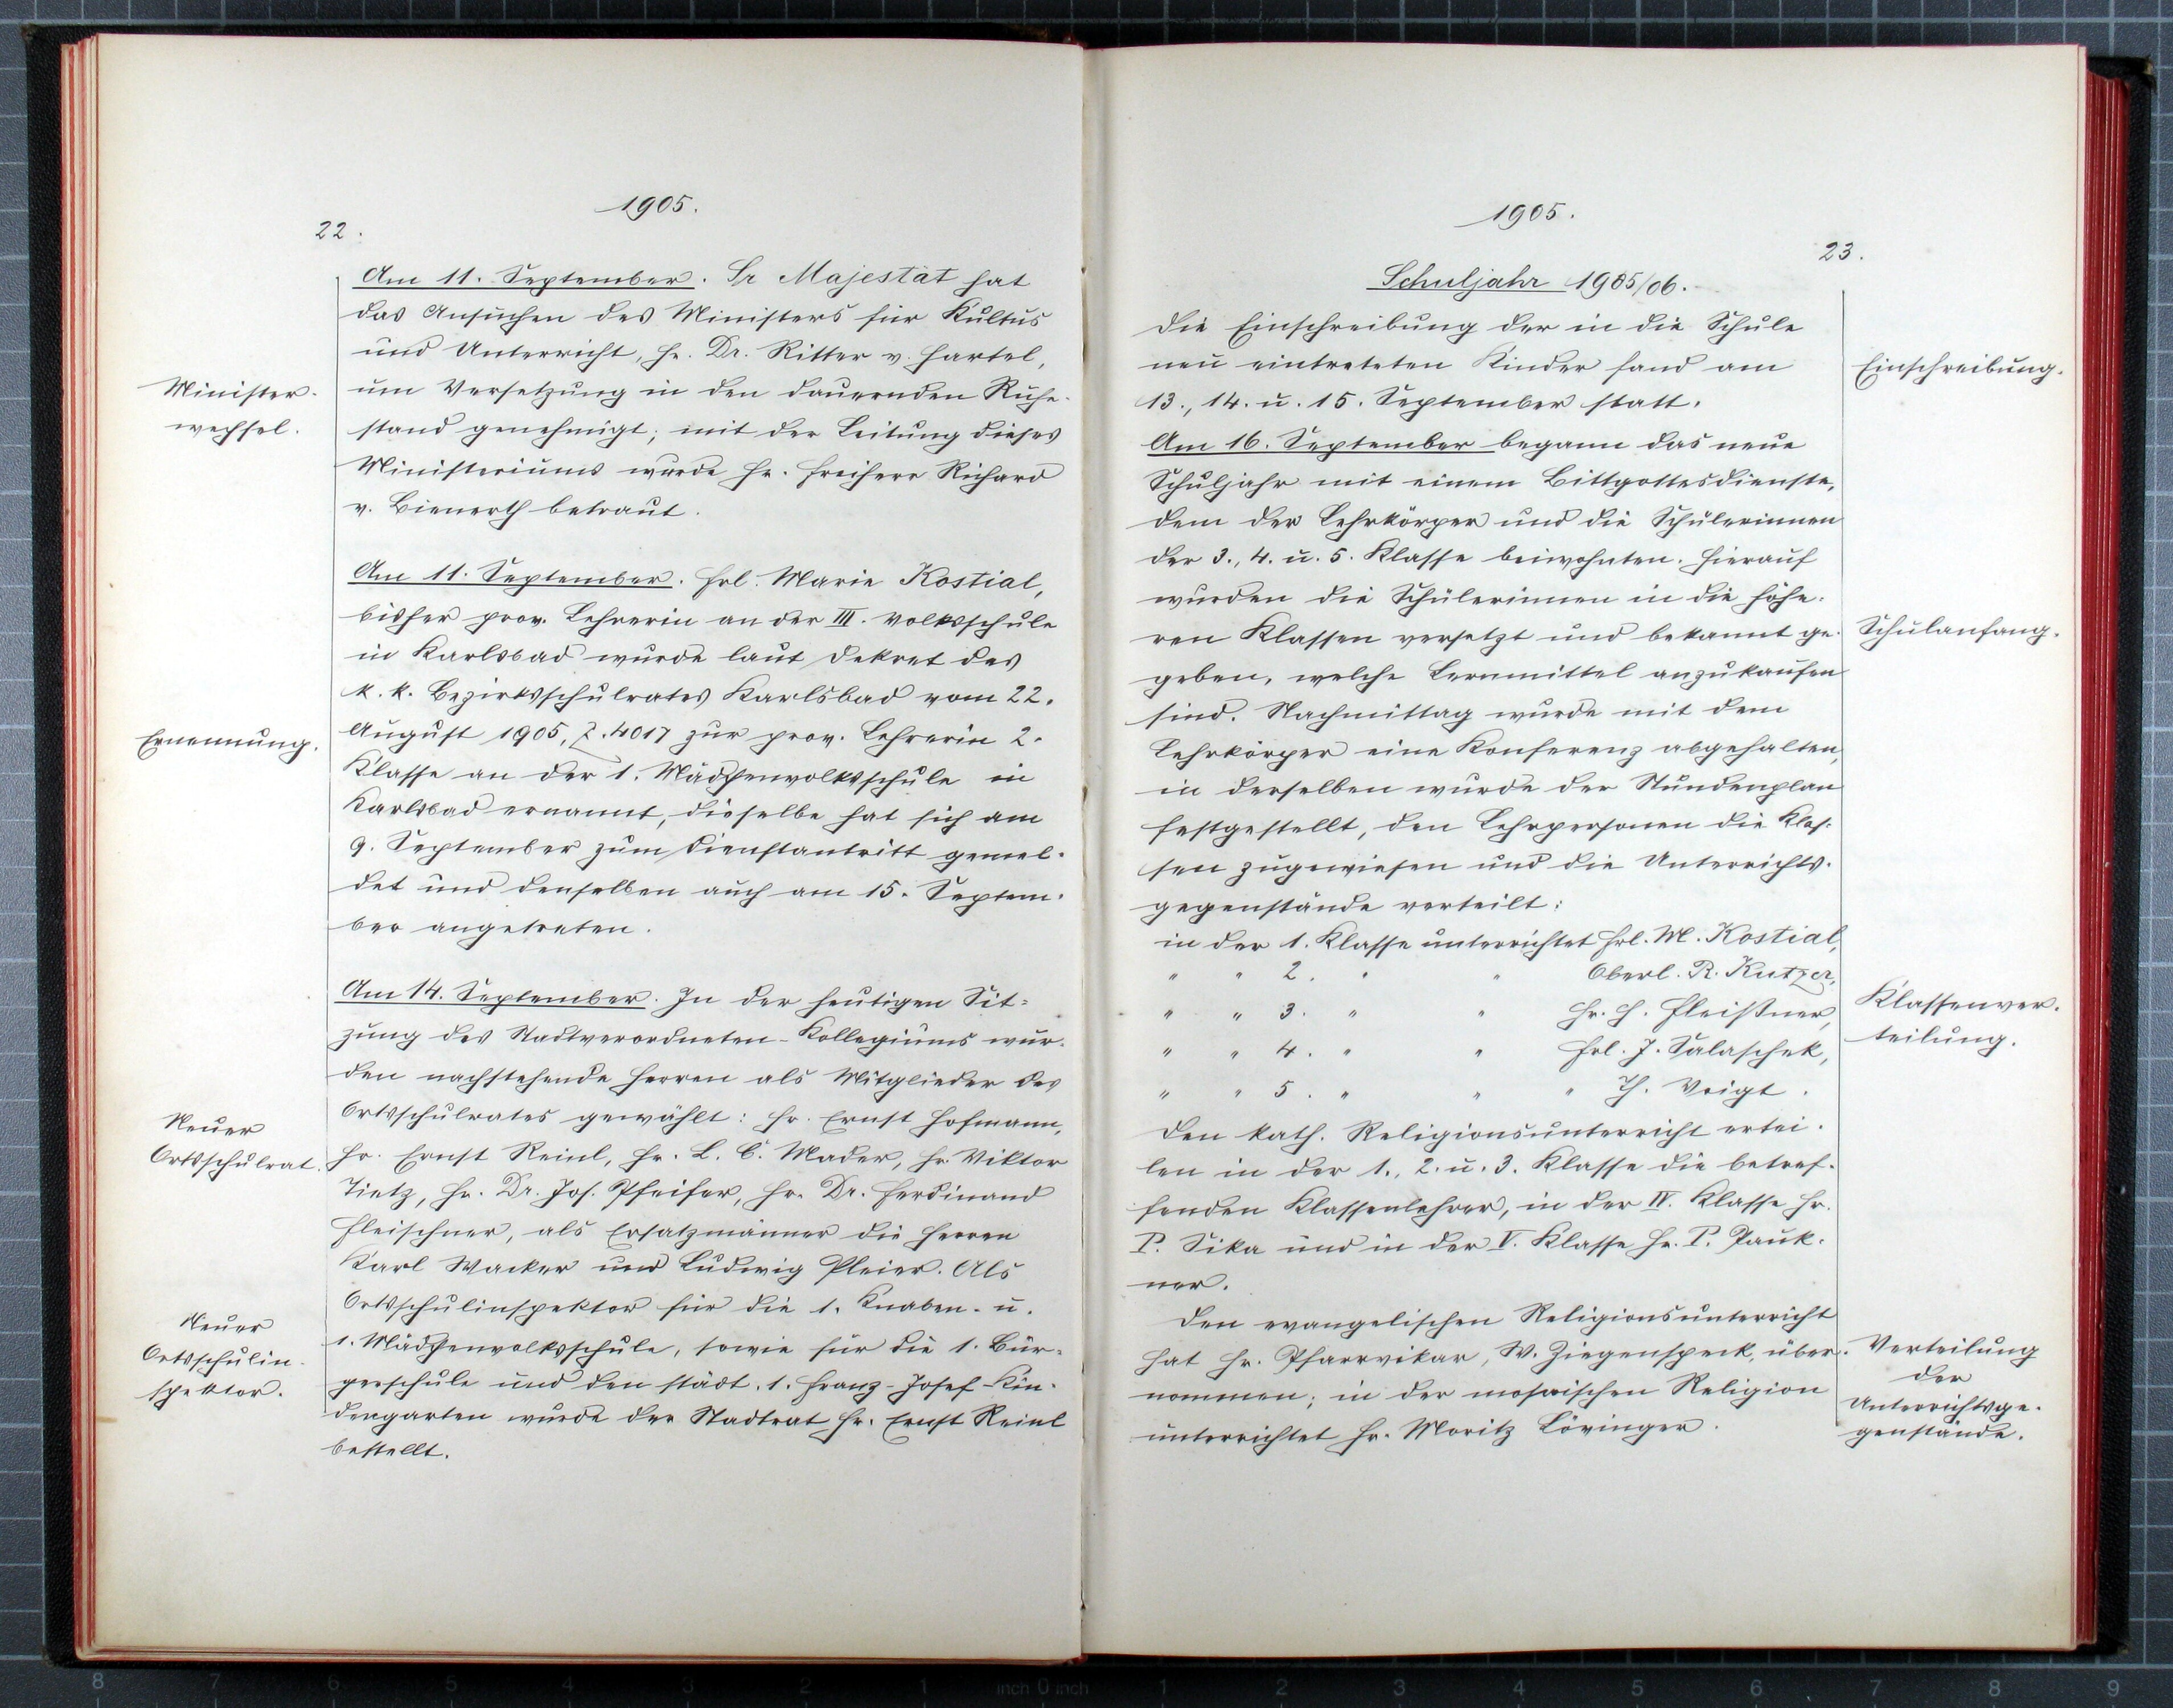 1905.
22.
Am 11. September. Sr Majestät hat
das Ansuchen des Ministers für Kultus
und Unterricht, Hr. Dr. Ritter v. Hartel,
Minister-
um Versetzung in den dauernden Ruhe-
wechsel.
stand genehmigt; mit der Leitung dieses
Ministeriums wurde Hr. Freiherr Richard
v. Bienerth betraut.
Am 11. September. Frl. Marie Kostial,
bisher prov. Lehrerin an der III. Volksschule
in Karlsbad wurde laut Dekret des
k. k. Bezirksschulrates Karlsbad vom 22.
Ernennung.
August 1905, Z. 4017 zur prov. Lehrerin 2.
Klasse an der 1. Mädchenvolksschule in
Karlsbad ernannt, dieselbe hat sich am
9. September zum Dienstantritt gemel-
det und denselben auch am 15. Septem-
ber angetreten.
Am 14. September. In der heutigen Sit-
zung des Stadtverordneten-Kollegiums wur-
den nachstehende Herren als Mitglieder des
Neuer
Ortsschulrates gewählt: Hr. Ernst Hofmann,
Ortsschulrat.
Hr. Ernst Reinl, Hr. L. C. Mader, Hr. Viktor
Tietz, Hr. Dr. Jos. Pfeifer, Hr. Dr. Ferdinand
Fleischner, als Ersatzmänner die Herren
Karl Wacker und Ludwig Pleier. Als
Neuer
Ortsschulinspektor für die 1. Knaben- u.
Ortsschulin-
1. Mädchenvolksschule, sowie für die 1. Bür-
spektor.
gerschule und den städt. 1. Franz-Josef-Kin-
dengarten wurde der Stadtrat Hr. Ernst Reinl
bestellt.
1905.
23.
Schuljahr 1905/06.
Die Einschreibung der in die Schule
neu eintreteten Kinder fand am
Einschreibung.
13., 14. u. 15. September statt.
Am 16. September begann das neue
Schuljahr mit einem Bittgottesdienste,
dem der Lehrkörper und die Schülerinnen
der 3., 4. u. 5. Klasse beiwohnten. Hierauf
wurden die Schülerinnen in die höhe-
ren Klassen versetzt und bekannt ge-
Schulanfang.
geben, welche Lernmittel anzukaufen
sind. Nachmittag wurde mit dem
Lehrkörper eine Konferenz abgehalten,
in derselben wurde der Stundenplan
festgestellt, den Lehrpersonen die Klas-
sen zugewiesen und die Unterrichts-
gegenstände verteilt:
in der 1. Klasse unterrichtet Frl. M. Kostial,
" " 2. " " Oberl. R. Kutzer,
" " 3. " " Hr. H. Fleißner,
Klassenver-
" " 4. " " Frl. J. Salaschek,
teilung.
" " 5. " " " Th. Voigt.
Den kath. Religionsunterricht ertei-
len in der 1., 2. u. 3. Klasse die betref-
fenden Klassenlehrer, in der IV. Klasse Hr.
P. Sika und in der V. Klasse Hr. P. Pauk-
ner.
Den evangelischen Religionsunterricht
hat Hr. Pfarrvikar, W. Ziegenspeck, über-
nommen; in der mosaischen Religion
unterrichtet Hr. Moritz Lövinger.
Verteilung
der
Unterrichtsge-
genstände.
8 7 6 5 4 3 2 1 inch 0 inch 1 2 3 4 5 6 7 8 9